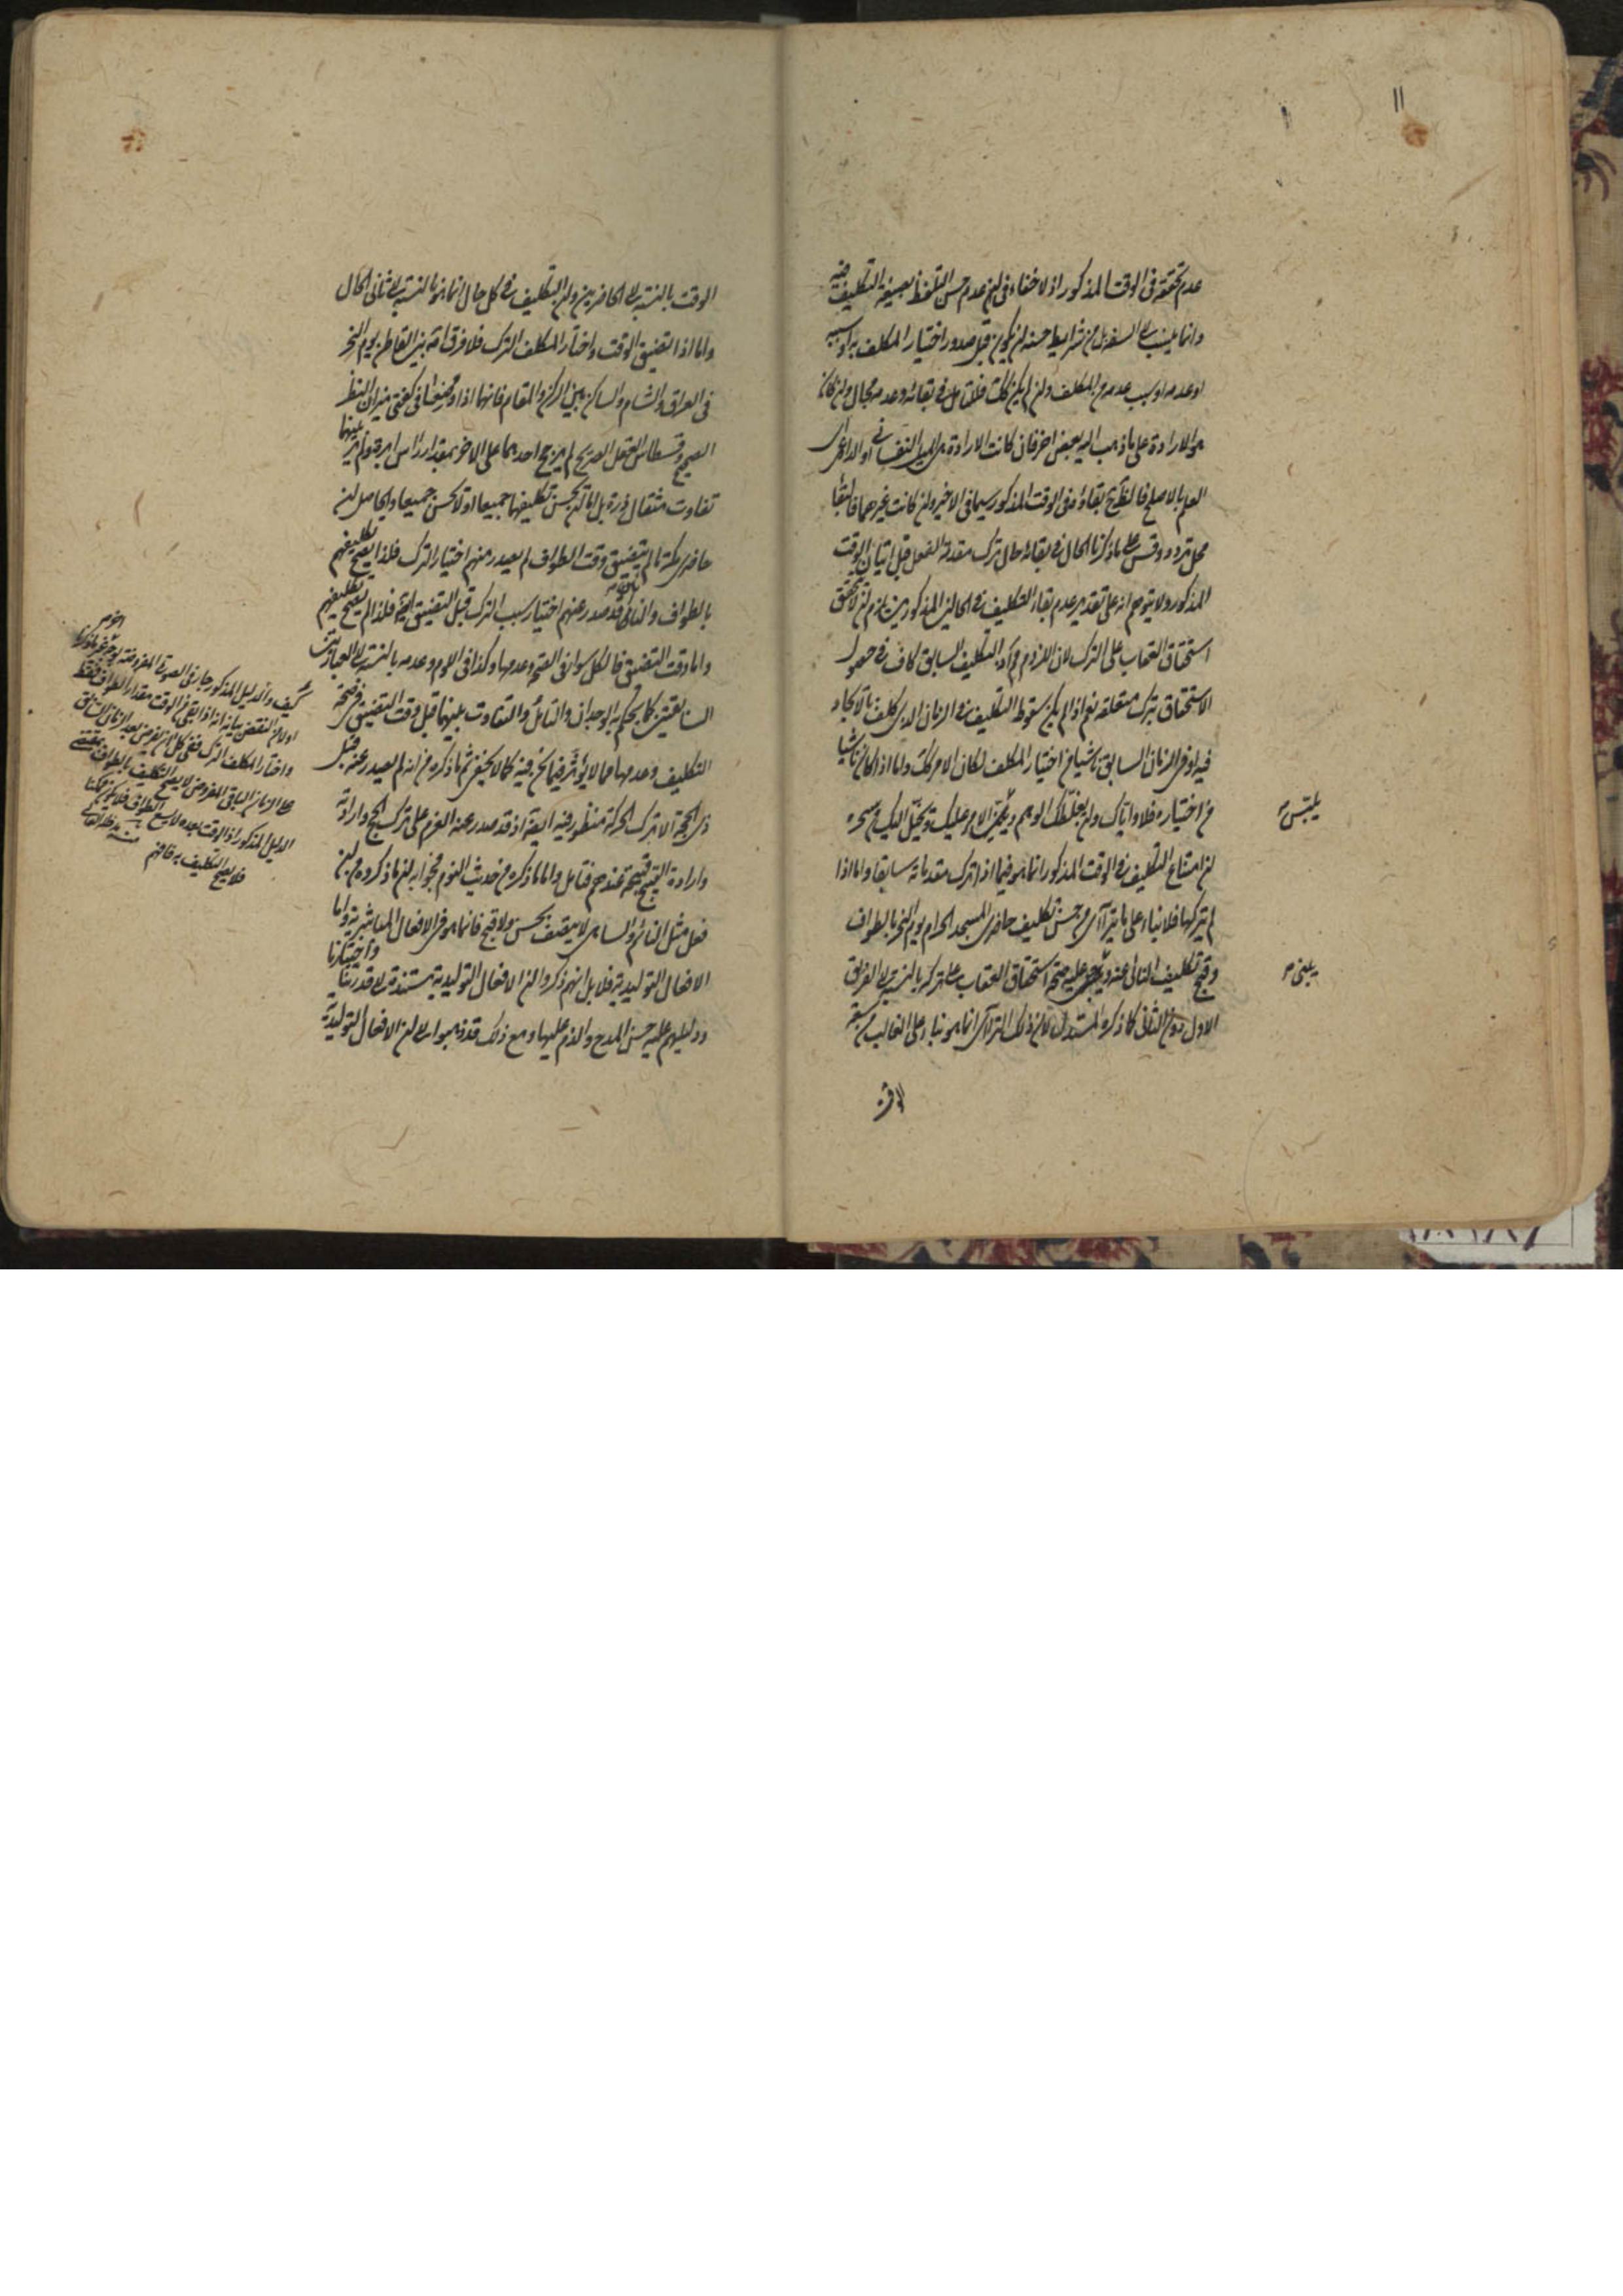 ١١
عدم تحققه في الوقت المذكور اذ لا خفاء في ان عدم حسن التلفظ بصيغة التكليف فيه
وانما ينسب الى السفه بل من شرايط حسنه ان يكون قبل صدور اختيار المكلف به او سببه
او عدمه او سبب عدمه من المكلف وان لم يكن كك فللتأمل في بقائه وعدمه مجال وان كان
هو الارادة على ما ذهب اليه بعض اخر فان كانت الارادة هي الميل النفساني او الداعي اي
العلم بالاصلح فالظاهر بقاؤه في الوقت المذكور سيما في الاخير وان كانت غيرهما فالبقاء
محل تردد وقس على ما ذكرنا الحال في بقائه حال ترك مقدمة الفعل قبل اتيان الوقت
المذكور ولا يتوهم انه على تقدير عدم بقاء التكليف في الحالين المذكورين يلزم ان لا يتحقق
استحقاق العقاب على الترك لان اللزوم التكليف السابق كاف في حصول
الاستحقاق بترك متعلقه نعم اذا لم يكن سقوط التكليف في الزمان الذي كلف بالايجاد
فيه او في الزمان السابق ناشيا من اختيار المكلف لكان الامر كك واما اذا كان ناشيا
من اختياره فلا واياك وان يغلطك الوهم الامر عليك ويخيل اليك من سحره
ان امتناع التكليف في الوقت المذكور انما هو فيما اذا ترك مقدماته سابقا واما اذا
لم يتركها فلا بناء على ما يترآاى من حسن تكليف حاضرى المسجد الحرام يوم النحر بالطواف
وقبح تكليف النائى عنه عليه صحة استحقاق العقاب على تركه بالنسبة الى الفريق
الاول دون الثاني كما ذكره المستدل لان ذلك الترآاى انما هو بناء على الغالب من سعة
يلبّس ص
يبتنى ص
الوقت بالنسبة الى الحاضرين وان التكليف في كل حال انما هو بالنسبة الى ثاني الحال
واما اذا تضيق الوقت واختار المكلف الترك فلا فرق اصلا بين القاطن يوم النحر
في العراق والشام والساكن بين الركن والمقام فانهما اذا وضعا في كفتى ميزان النظر
الصحيح وقسطاس العقل الصريح لم يرجح احدهما على الاخر بمقدار راس ابرة ولم ير بينهما
تفاوت مثقال ذرة بل اما ان يحسن تكليفهما جميعا او لا يحسن جميعا والحاصل ان
حاضرى مكة ما لم يتضيق وقت الطواف لم يصدر منهم اختيار الترك فلذا يصح تكليفهم
بالطواف والنائى قد صدر عنهم اختيار سبب الترك قبل التضيق فلذا لم يصح تكليفهم
واما وقت التضيق فالكل سواء في الصحة وعدمها وكذا في اللوم وعدمه بالنسبة الى العبارتين
السابقتين كما يحكم به الوجدان والتأمل والتفاوت بينهما قبل وقت التضيق في صحة
التكليف وعدمها مما لا يؤثر فيما نحن فيه كما لا يخفى ثم ما ذكره من انه لم يصدر عنه قبل
ذى الحجة الا ترك الحركة منظور فيه اذ قد صدر عنه العزم على ترك الحج وارادته
وارادة القبيح قبيحة عندهم فتامل واما ما ذكره من حديث النوم فجوابه ان ما ذكروه من ان
فعل مثل النائم والساهى لا يتصف بحسن ولا قبح فانما هو في الافعال المباشرية واما
الافعال التوليدية فلا بل انهم ذكروا ان الافعال التوليدية مستندة الى قدرتنا واختيارنا
ودليلهم عليه حسن المدح والذم عليها ومع ذلك قد ذهبوا الى ان الافعال التوليدية
كيف والدليل المذكور جار في الصورة المفروضة
اولا من النقض بيانه انه اذا بقي من الوقت مقدار الطواف فقط
واختار المكلف الترك ففى كل ان يفرض بعد الزمان السابق
على الزمان الباقى المفروض لا يصح التكليف بالطواف بمقتضى
الدليل المذكور اذ الوقت بعده لا يسع الطواف فلا يكون ممكنا
فلا يصح التكليف به فافهم منه